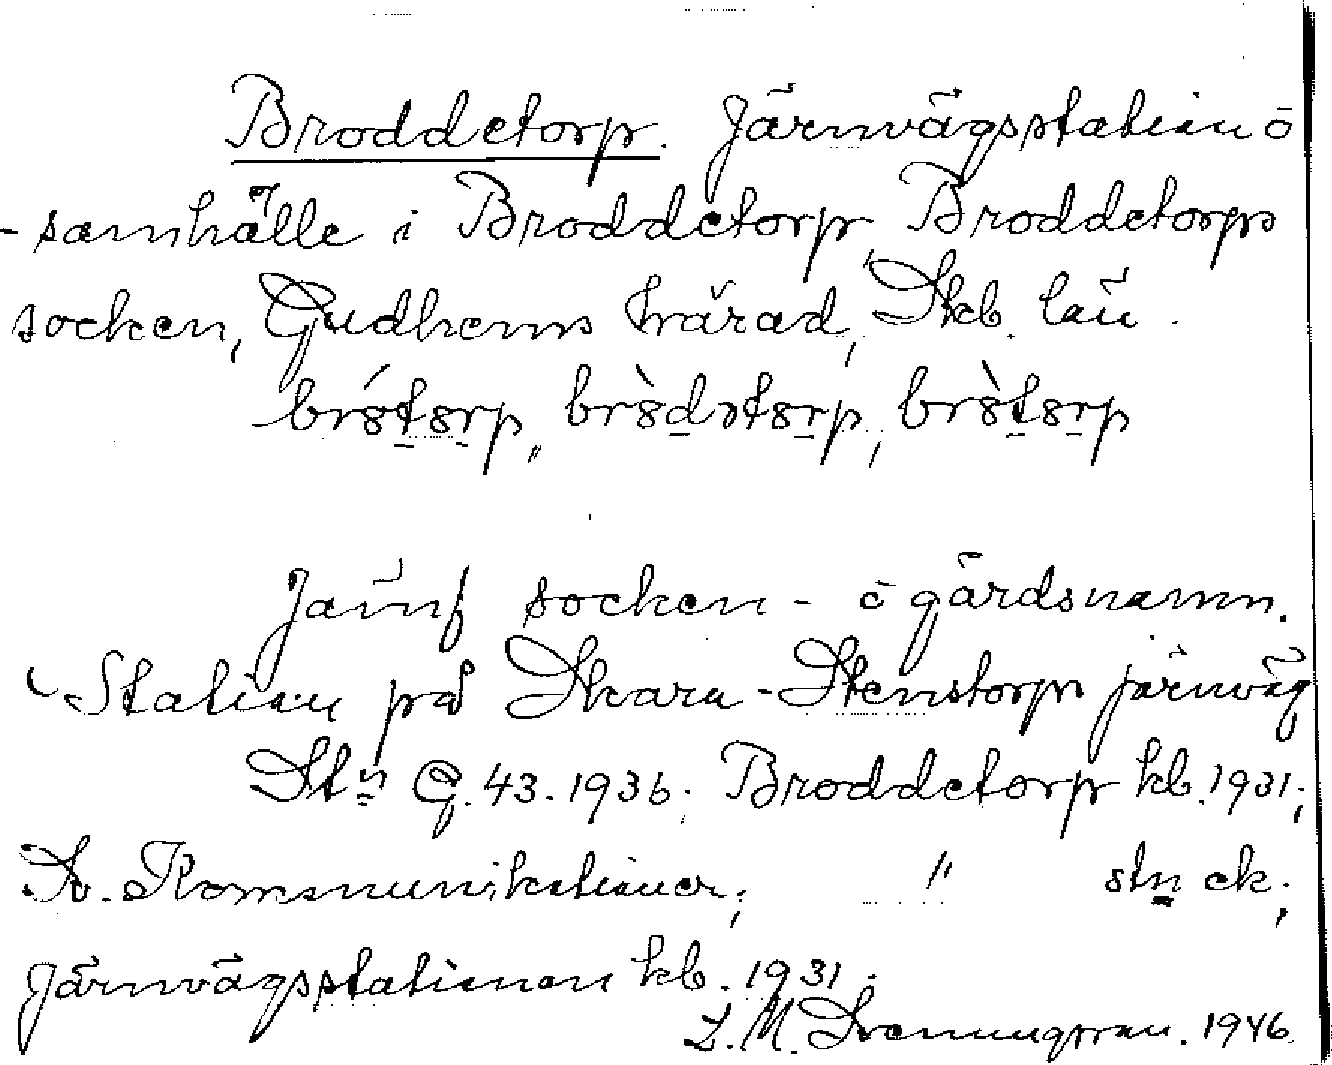 Broddetorp. Järnvägsstation o
-samhälle i Broddetorp, Broddetorps
socken, Gudhems härad, Skb. län.
Jämf socken- o gårdsnamn.
Station på Skara-Stenstorps järnväg
Stn G. 43. 1936. Broddetorp kb. 1931;
Sv. Kommunikationer; " stn ek;
Järnvägsstationen kb. 1931.
L. M. Svenungsson. 1946